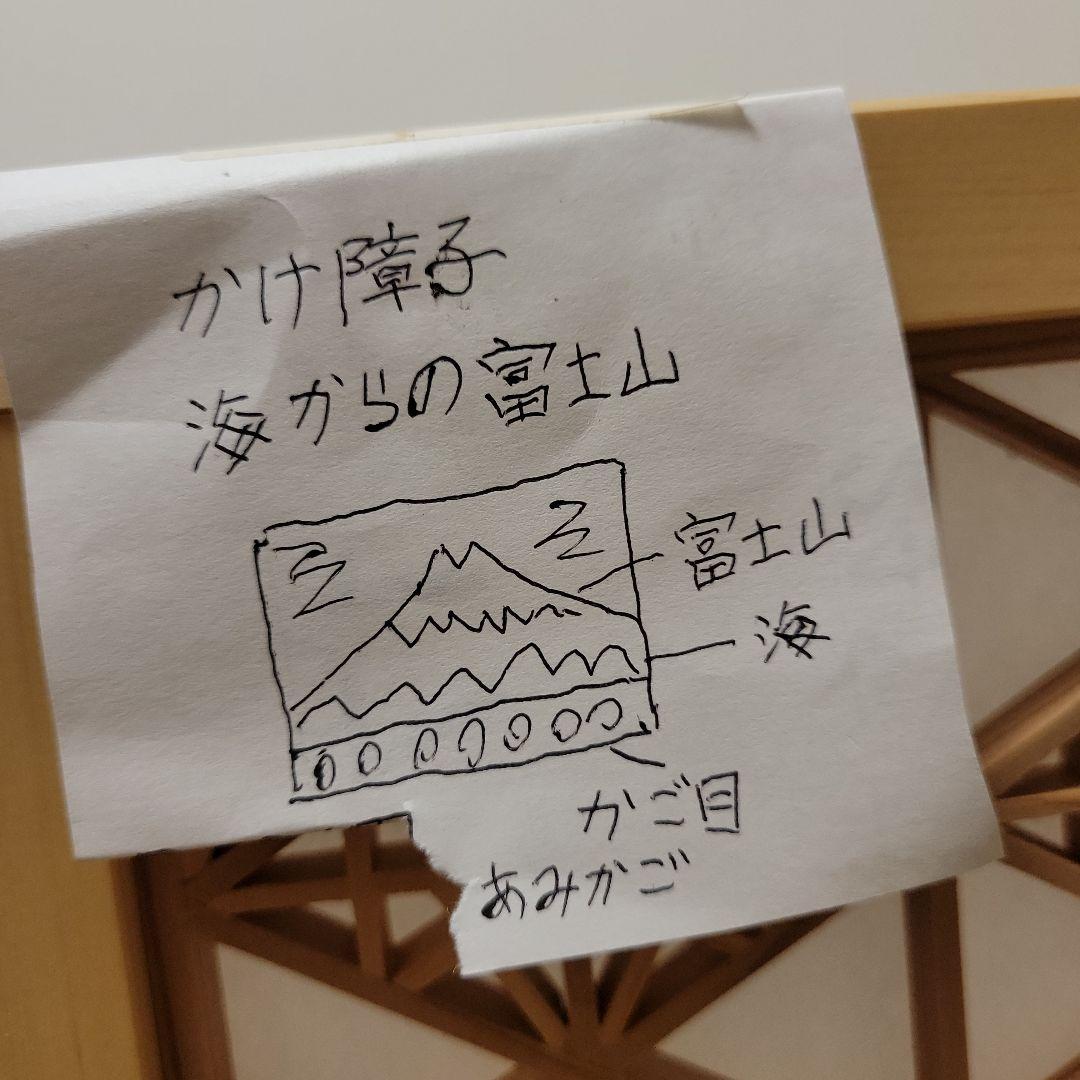 かけ障子
海からの富士山
富士山
海
かご目
あみかご